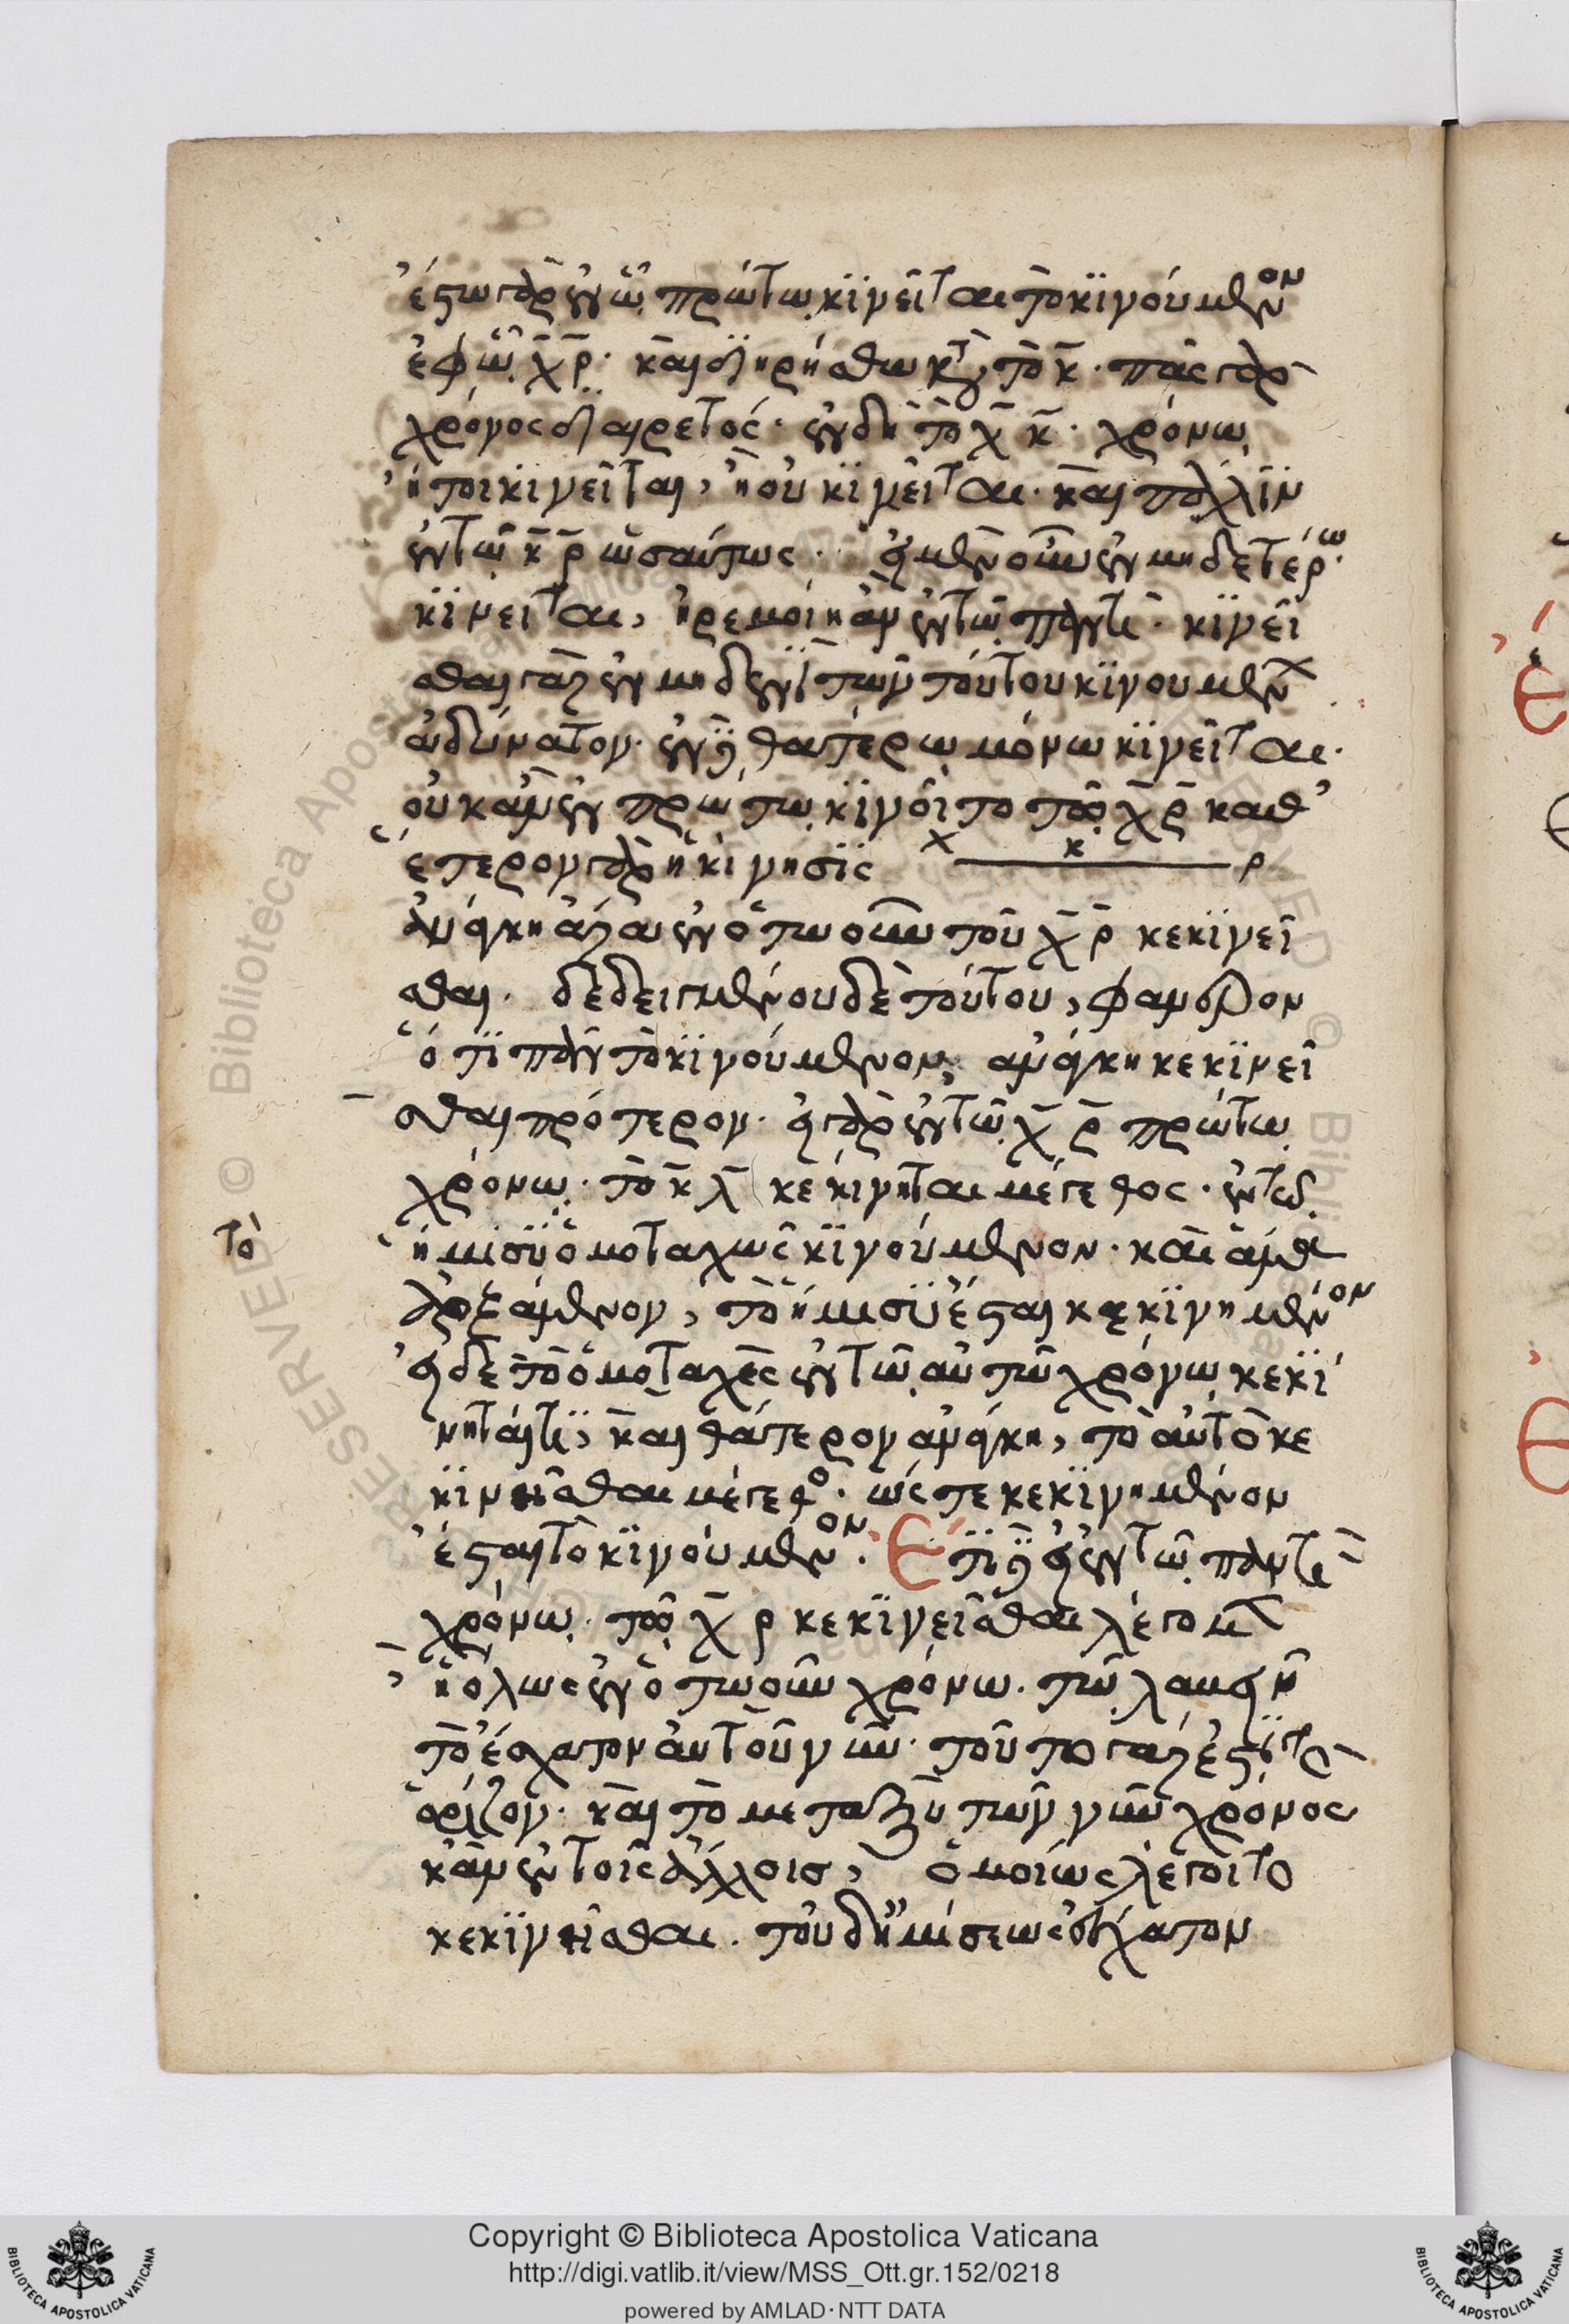 ἔστω γὰρ ἐν ᾧ πρώτῳ κινεῖται τὸ κινούμενον
ἐφ' ᾧ χ̅ρ̅. καὶ διῃρήσθω κατὰ τὸ κ̅. πᾶς γὰρ
χρόνος διαιρετός. ἐν δὴ τῷ χ̅ κ̅. χρόνῳ
ἤτοι κινεῖται, ἢ οὐ κινεῖται. καὶ πάλιν
ἐν τῷ κ̅ ρ̅ ὡσαύτως. εἰ μὲν οὖν ἐν μηδετέρῳ
κινεῖται, ἠρεμοίη ἂν ἐν τῷ παντί. κινεῖ
σθαι γὰρ ἐν μηδενὶ τῶν τούτου κινούμενον
ἀδύνατον. ἐν δὲ θατέρῳ μόνῳ κινεῖται.
οὐκ ἂν ἐν πρώτῳ κινοῖτο τῷ χ̅ ρ̅ καθ'
ἕτερον γὰρ ἡ κίνησις
χ κ ρ
ἀνάγκη ἄρα ἐν ὁτῳοῦν τοῦ χ̅ ρ̅ κεκινεῖ
σθαι. δεδειγμένου δὲ τούτου, φανερὸν
ὅτι πᾶν τὸ κινούμενον, ἀνάγκη κεκινεῖ
σθαι πρότερον. εἰ γὰρ ἐν τῷ χ̅ ρ̅ πρώτῳ
χρόνῳ. τὸ κ̅ λ̅ κεκίνηται μέγεθος. ἐν τῷ
το
ἡμίσει ὁμοταχῶς κινούμενον. καὶ ἅμα
ἀρξάμενον, τὸ ἥμισυ ἔσται κεκινημένον
εἰ δὲ τὸ ὁμοταχὲς ἐν τῷ αὐτῷ χρόνῳ κεκί
νηταί τι, καὶ θάτερον ἀνάγκη, τὸ αὐτὸ κε
κινεῖσθαι μέγεθος. ὥστε κεκινημένον
ἔσται τὸ κινούμενον. Ἔτι δὲ εἰ ἐν τῷ παντὶ
χρόνῳ. τῷ χ̅ ρ κεκινεῖσθαι λέγομεν
ἢ ὅλως ἐν ὁτῳοῦν χρόνῳ. τῷ λαβεῖν
τὸ ἔσχατον αὐτοῦ νῦν. τοῦτο γάρ ἐστι τὸ
ὁρίζον. καὶ τὸ μεταξὺ τῶν νῦν χρόνος
κἂν ἐν τοῖς ἄλλοις, ὁμοίως λέγοιτο
κεκινεῖσθαι. τοῦ δ' ἡμίσεως ἔσχατον